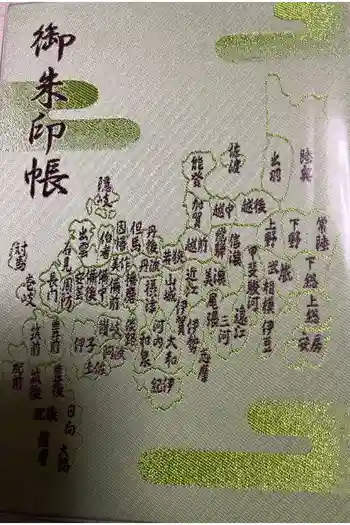 御朱印帳
陸奥
出羽
佐渡
能登
越後
越中
加賀
越前
常陸
下野
上野
信濃
飛騨
美濃
近江
若狭
丹後
丹波
但馬
因幡
伯耆
隠岐
出雲
石見
美作
播磨
備前
備中
備後
安芸
周防
長門
対馬
壱岐
下総
上総
安房
武蔵
相模
伊豆
甲斐
駿河
遠江
三河
尾張
伊勢
志摩
伊賀
山城
摂津
河内
和泉
大和
紀伊
淡路
讃岐
阿波
伊予
土佐
豊前
筑前
肥前
筑後
豊後
肥後
日向
大隅
薩摩